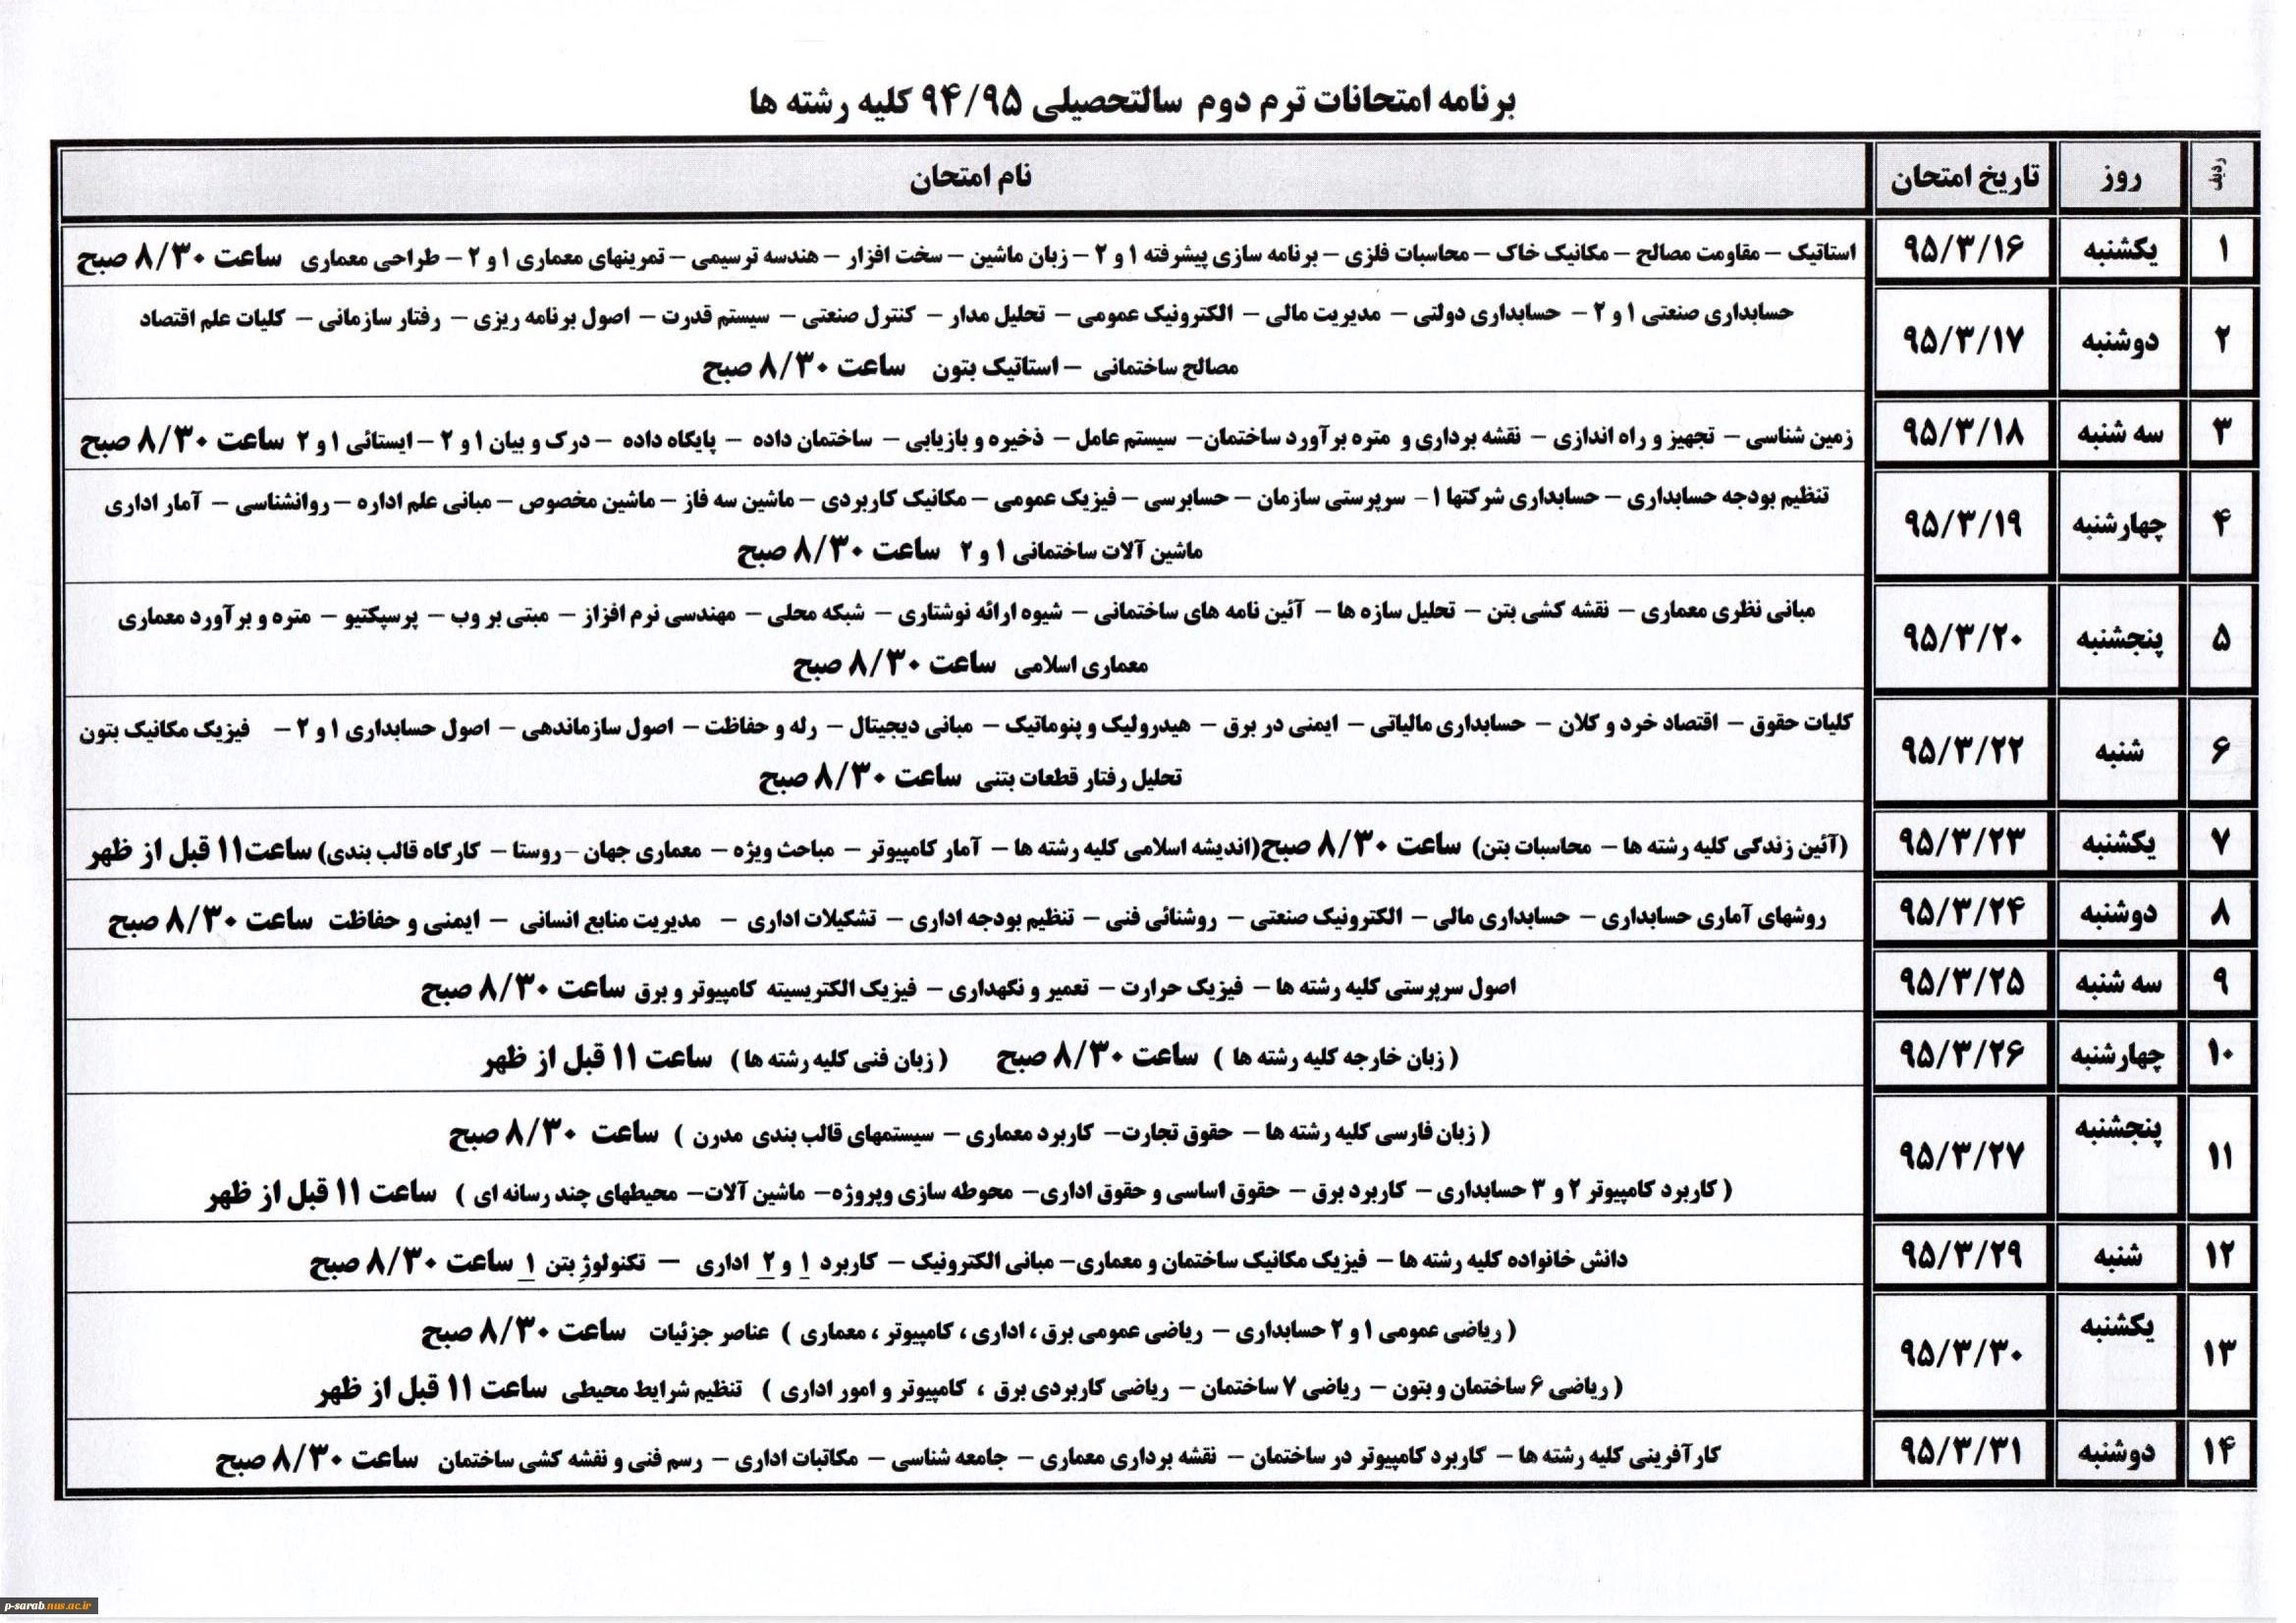 برنامه امتحانات ترم دوم سالتحصیلی ۹۴/۹۵ کلیه رشته ها
ردیف روز تاریخ امتحان نام امتحان
۱ یکشنبه ۹۵/۳/۱۶ استاتیک – مقاومت مصالح – مکانیک خاک – محاسبات فلزی – برنامه سازی پیشرفته ۱ و ۲ – زبان ماشین – سخت افزار – هندسه ترسیمی – تمرینهای معماری ۱ و ۲ – طراحی معماری ساعت ۸/۳۰ صبح
۲ دوشنبه ۹۵/۳/۱۷ حسابداری صنعتی ۱ و ۲ – حسابداری دولتی – مدیریت مالی – الکترونیک عمومی – تحلیل مدار – کنترل صنعتی – سیستم قدرت – اصول برنامه ریزی – رفتار سازمانی – کلیات علم اقتصاد
مصالح ساختمانی – استاتیک بتون ساعت ۸/۳۰ صبح
۳ سه شنبه ۹۵/۳/۱۸ زمین شناسی – تجهیز و راه اندازی – نقشه برداری و متره برآورد ساختمان – سیستم عامل – ذخیره و بازیابی – ساختمان داده – پایگاه داده – درک و بیان ۱ و ۲ – ایستائی ۱ و ۲ ساعت ۸/۳۰ صبح
۴ چهارشنبه ۹۵/۳/۱۹ تنظیم بودجه حسابداری – حسابداری شرکتها ۱ – سرپرستی سازمان – حسابرسی – فیزیک عمومی – مکانیک کاربردی – ماشین سه فاز – ماشین مخصوص – مبانی علم اداره – روانشناسی – آمار اداری
ماشین آلات ساختمانی ۱ و ۲ ساعت ۸/۳۰ صبح
۵ پنجشنبه ۹۵/۳/۲۰ مبانی نظری معماری – نقشه کشی بتن – تحلیل سازه ها – آئین نامه های ساختمانی – شیوه ارائه نوشتاری – شبکه محلی – مهندسی نرم افزاز – مبتی بر وب – پرسپکتیو – متره و برآورد معماری
معماری اسلامی ساعت ۸/۳۰ صبح
۶ شنبه ۹۵/۳/۲۲ کلیات حقوق – اقتصاد خرد و کلان – حسابداری مالیاتی – ایمنی در برق – هیدرولیک و پنوماتیک – مبانی دیجیتال – رله و حفاظت – اصول سازماندهی – اصول حسابداری ۱ و ۲ – فیزیک مکانیک بتون
تحلیل رفتار قطعات بتنی ساعت ۸/۳۰ صبح
۷ یکشنبه ۹۵/۳/۲۳ (آئین زندگی کلیه رشته ها – محاسبات بتن) ساعت ۸/۳۰ صبح(اندیشه اسلامی کلیه رشته ها – آمار کامپیوتر – مباحث ویژه – معماری جهان – روستا – کارگاه قالب بندی) ساعت۱۱ قبل از ظهر
۸ دوشنبه ۹۵/۳/۲۴ روشهای آماری حسابداری – حسابداری مالی – الکترونیک صنعتی – روشنائی فنی – تنظیم بودجه اداری – تشکیلات اداری – مدیریت منابع انسانی – ایمنی و حفاظت ساعت ۸/۳۰ صبح
۹ سه شنبه ۹۵/۳/۲۵ اصول سرپرستی کلیه رشته ها – فیزیک حرارت – تعمیر و نکهداری – فیزیک الکتریسیته کامپیوتر و برق ساعت ۸/۳۰ صبح
۱۰ چهارشنبه ۹۵/۳/۲۶ ( زبان خارجه کلیه رشته ها ) ساعت ۸/۳۰ صبح ( زبان فنی کلیه رشته ها ) ساعت ۱۱ قبل از ظهر
۱۱ پنجشنبه ۹۵/۳/۲۷ ( زبان فارسی کلیه رشته ها – حقوق تجارت – کاربرد معماری – سیستمهای قالب بندی مدرن ) ساعت ۸/۳۰ صبح
( کاربرد کامپیوتر ۲ و ۳ حسابداری – کاربرد برق – حقوق اساسی و حقوق اداری – محوطه سازی وپروژه – ماشین آلات – محیطهای چند رسانه ای ) ساعت ۱۱ قبل از ظهر
۱۲ شنبه ۹۵/۳/۲۹ دانش خانواده کلیه رشته ها – فیزیک مکانیک ساختمان و معماری – مبانی الکترونیک – کاربرد ۱ و ۲ اداری – تکنولوژ بتن ۱ ساعت ۸/۳۰ صبح
۱۳ یکشنبه ۹۵/۳/۳۰ ( ریاضی عمومی ۱ و ۲ حسابداری – ریاضی عمومی برق ، اداری ، کامپیوتر ، معماری ) عناصر جزئیات ساعت ۸/۳۰ صبح
( ریاضی ۶ ساختمان و بتون – ریاضی ۷ ساختمان – ریاضی کاربردی برق ، کامپیوتر و امور اداری ) تنظیم شرایط محیطی ساعت ۱۱ قبل از ظهر
۱۴ دوشنبه ۹۵/۳/۳۱ کارآفرینی کلیه رشته ها – کاربرد کامپیوتر در ساختمان – نقشه برداری معماری – جامعه شناسی – مکاتبات اداری – رسم فنی و نفشه کشی ساختمان ساعت ۸/۳۰ صبح
p-sarab.nus.ac.ir